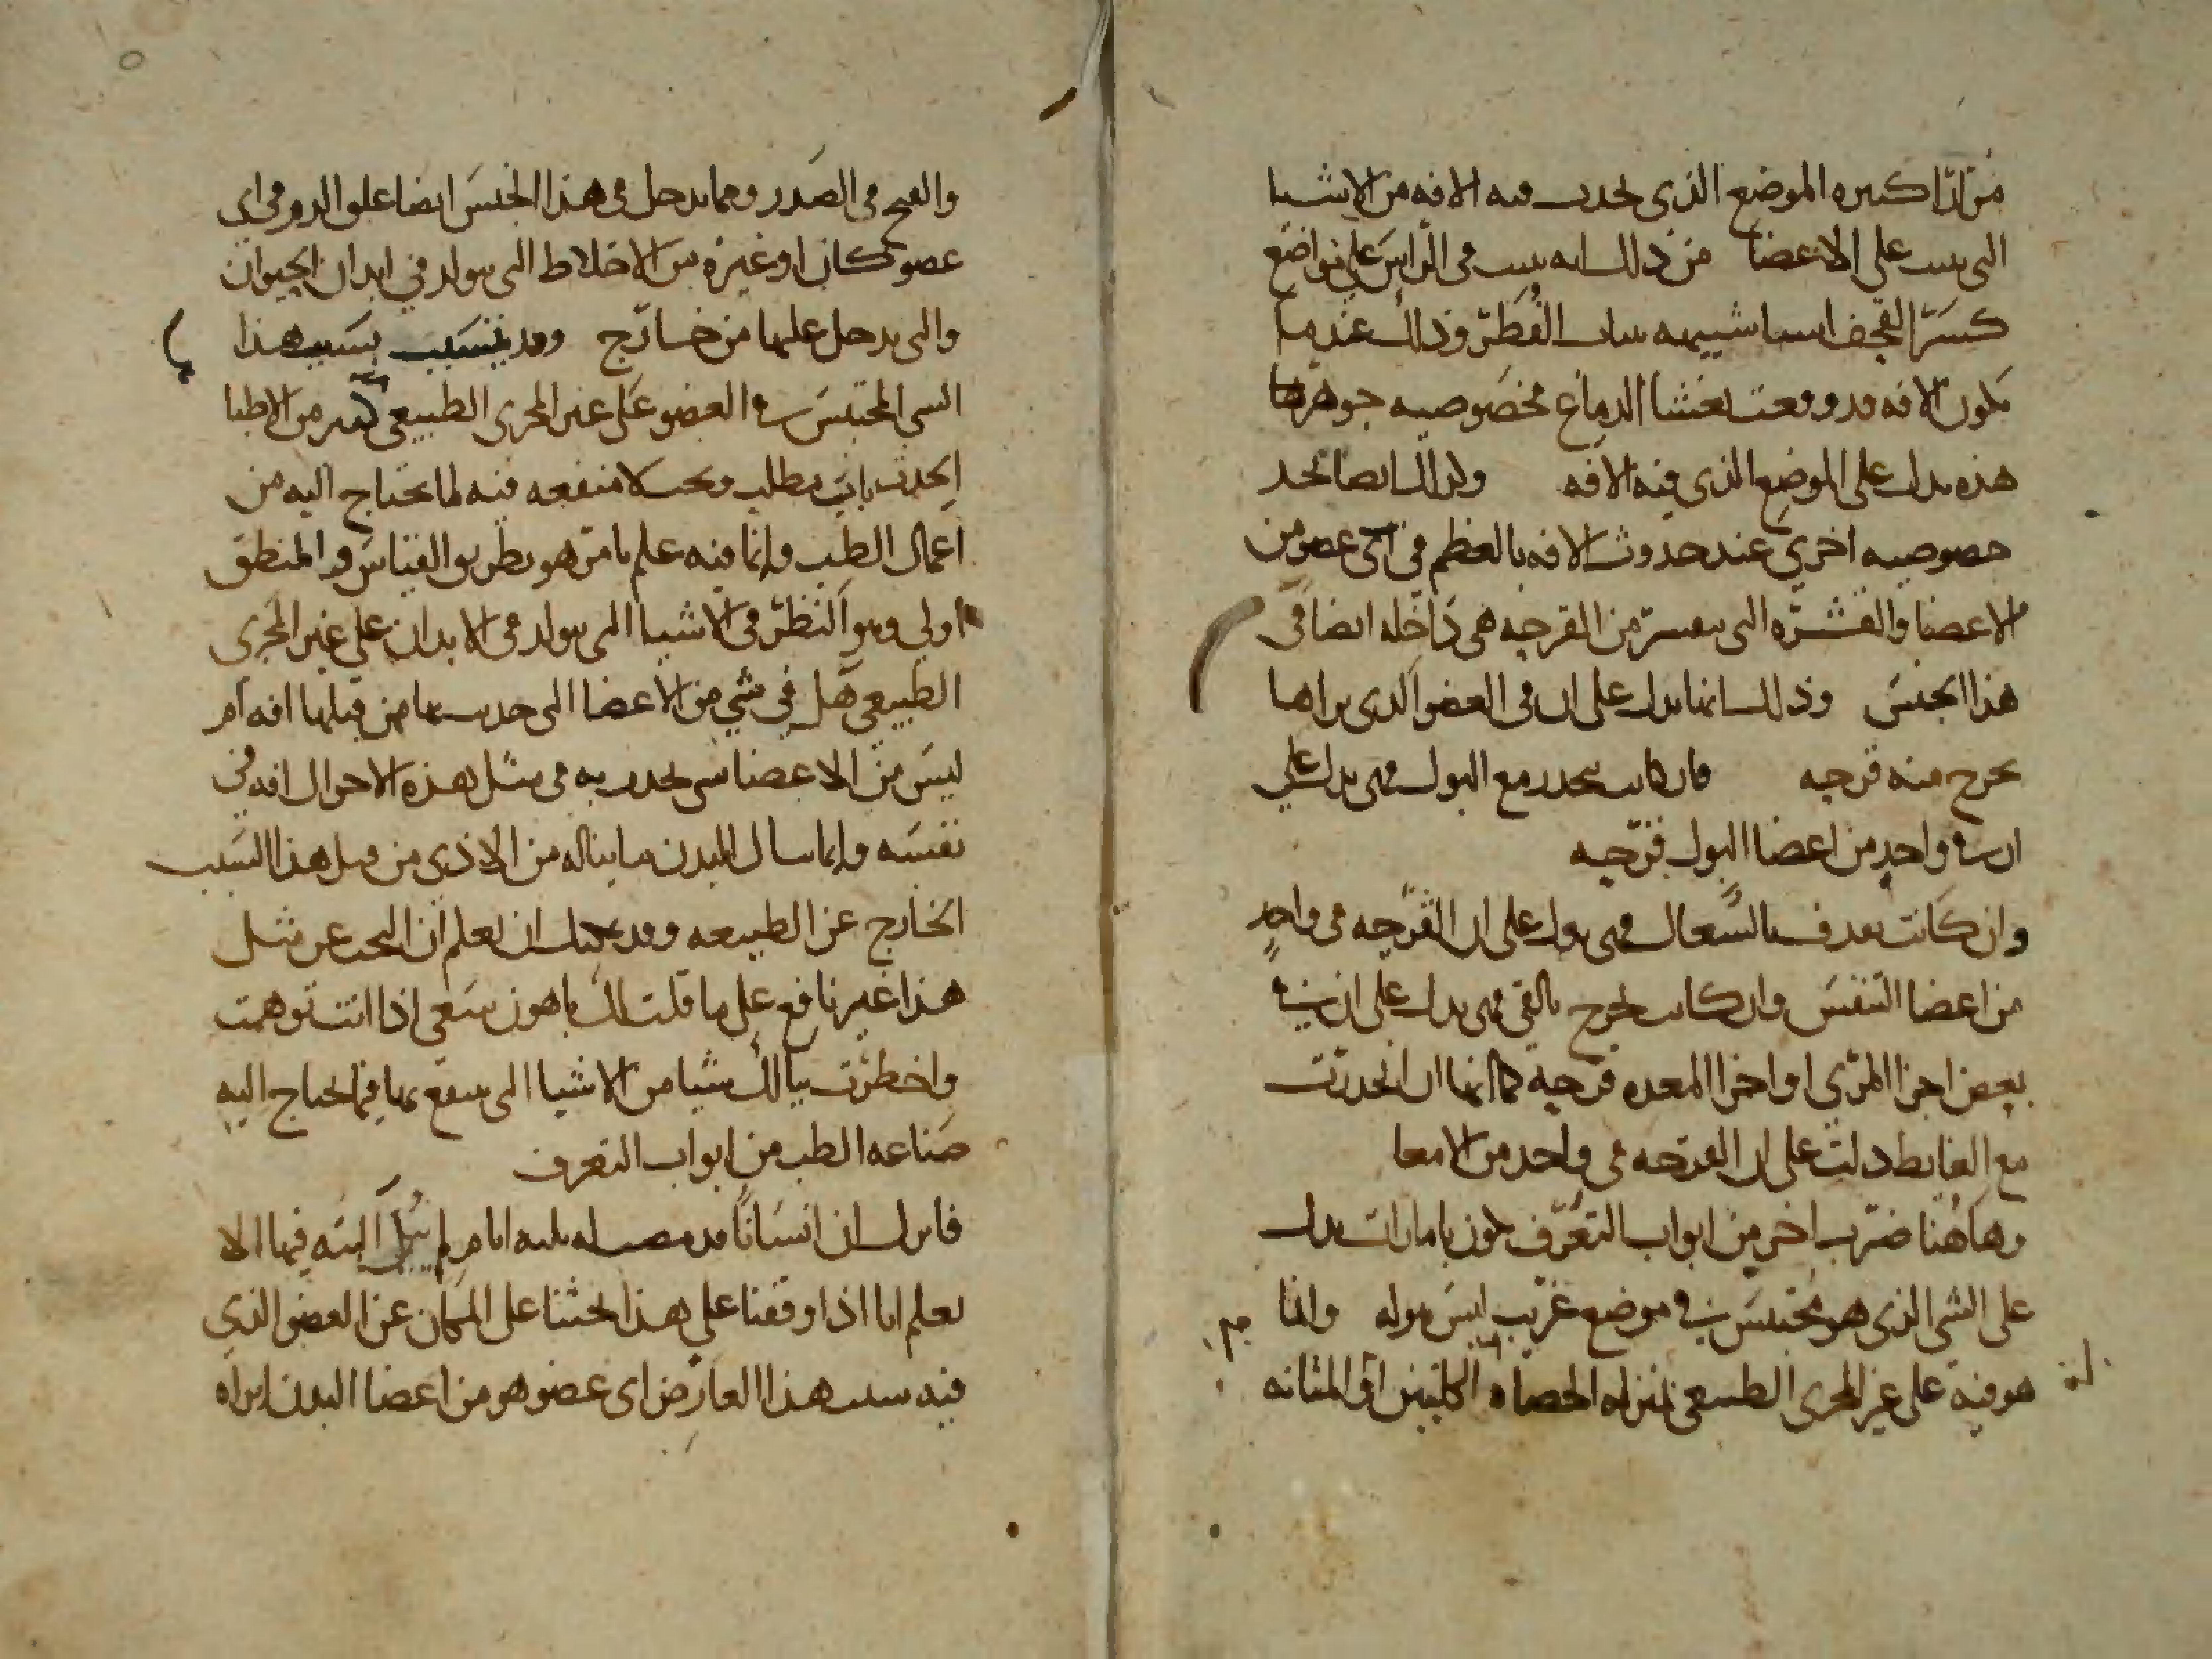 مرارا كثيره الموضع الذي تحدث فيه الافه من الاشيا
التى تنبت على الاعضا من ذلك انه ينبت فى الراس على مواضع
كسر القحف اشيا شبيهه بنبات الفطر وذلك عندما
تكون الافه قد وقعت بغشا الدماغ فخصوصيه جوهرها
هذه تدل على الموضع الذي فيه الافه وكذلك ايضا نجد
خصوصيه اخرى عند حدوث الافه بالعظم في اى عضو من
الاعضا والقشره التى تنقشر من القرحه هى داخله ايضا فى
هذا الجنس وذلك انها تدل على ان فى العضو الذى تراها
تخرج منه قرحه فان كانت تنحدر مع البول فهى تدل على
ان في واحد من اعضا البول قرحه
وان كانت تقذف بالسعال فهى تدل على ان القرحه فى واحد
من اعضا التنفس وان كانت تخرج بالقى فهى تدل على ان في
بعض اجزا المرى او اجزا المعده قرحه كما انها ان انحدرت
مع الغايط دلت على ان القرحه فى واحد من الامعا
وهاهنا ضرب اخر من ابواب التعرف يكون بامارات تدل
على الشى الذى هو محتبس في موضع غريب ليس هو له وانما
هو فيه على غير المجرى الطبيعى بمنزله الحصاه الكليتين او المثانه
والقيح فى الصدر ومما يدخل فى هذا الجنس ايضا علق الدم فى اى
عضو كان او غيره من الاخلاط التى تتولد في ابدان الحيوان
والتى تدخل عليها من خارج وقد بسبب هذا
الشى المحتبس في العضو على غير المجرى الطبيعى كثير من الاطبا
احدث باب مطلب وبحث لا منفعه فيه لما تحتاج اليه من
اعمال الطب وانما فيه علم ما من هو بطريق القياس والمنطق
اولى وهو النظر فى الاشيا التى تتولد فى الابدان على غير المجرى
الطبيعى هل في شي من الاعضا التى حدث بها من قبلها افه ام
ليس من الاعضا شى تحدث به فى مثل هذه الاحوال افه في
نفسه وانما ينال البدن ما يناله من الاذى من قبل هذا السبب
الخارج عن الطبيعه وقد يجب ان تعلم ان البحث عن مثل
هذا غير نافع على ما قلت لك باهون سعى اذا انت توهمت
واخطرت ببالك شيا من الاشيا التى ينتفع بها فيما تحتاج اليه
صناعه الطب من ابواب التعرف
فانزل ان انسانا قد له ثلثه ايام لم يبل البته فيها الا
تعلم انا اذا وقفنا على هذا بحثنا على المكان عن العضو الذي
فيه سبب هذا العارض اى عضو هو من اعضا البدن اتراه